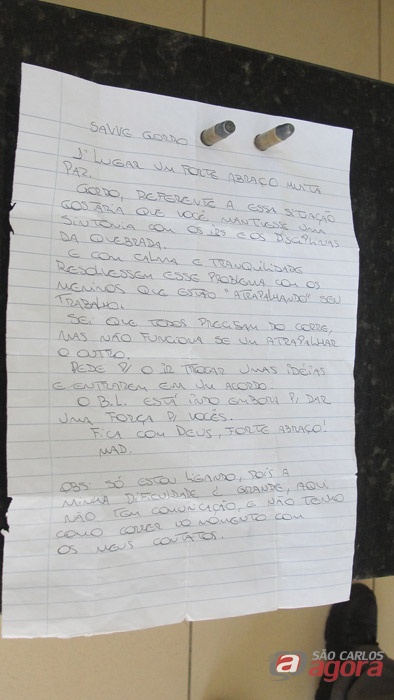 SALVE GORDO
1º LUGAR UM FORTE ABRAÇO MUITA
PAZ.
GORDO, REFERENTE A ESSA SITUAÇÃO
GOSTARIA QUE VOCÊ MANTIVESSE UMA
SINTONIA COM OS IRS E OS DISCIPLINAS
DA QUEBRADA.
E COM CALMA E TRANQUILIDADE
RESOLVESSEM ESSE PROBLEMA COM OS
MENINOS QUE ESTÃO "ATRAPALHANDO" SEU
TRABALHO.
SEI QUE TODOS PRECISAM DO CORRE,
MAS NÃO FUNCIONA SE UM ATRAPALHAR
O OUTRO.
PEDE P/ O IR TROCAR UMAS IDÉIAS
E ENTRAREM EM UM ACORDO.
O B.L. ESTÁ INDO EMBORA P/ DAR
UMA FORÇA P/ VOCÊS.
FICA COM DEUS, FORTE ABRAÇO!
MAD.
OBS: SÓ ESTOU LIGANDO, POIS A
MINHA DIFICULDADE É GRANDE, AQUI
NÃO TEM COMUNICAÇÃO, E NÃO TENHO
COMO CORRER NO MOMENTO COM
OS MEUS CONTATOS.
SÃO CARLOS
agora